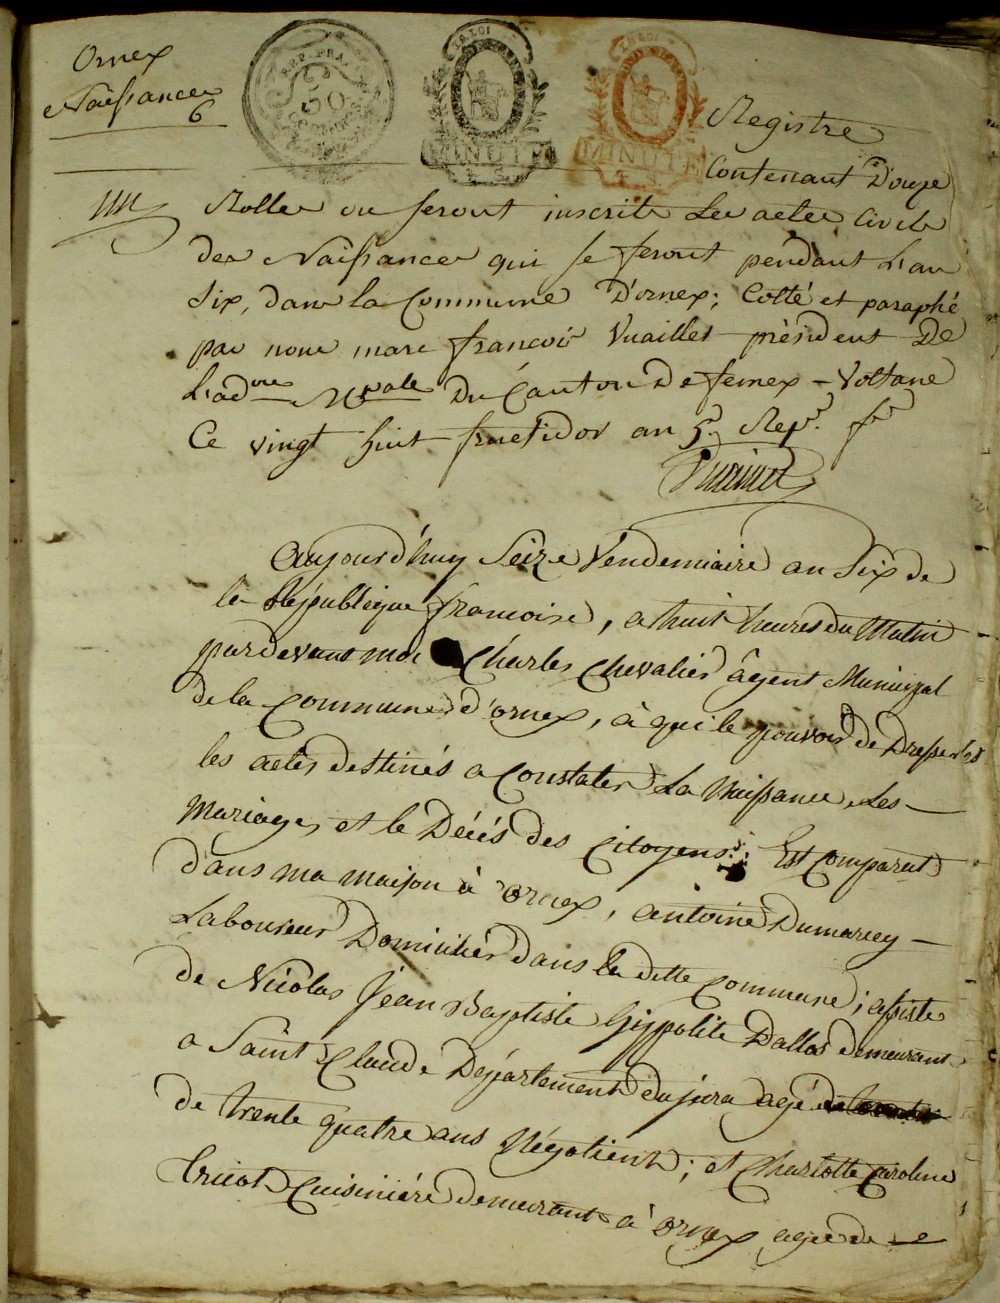 Ornex
Naissances
6
REP. FRA.
50
CENTIMES
LA LOI
MINUTE
LA LOI
MINUTE
Registre
Contenant Douze
Rolles ou seront inscrits Les actes Civils
des Naissances qui se feront pendant L'an
Six, dans la Commune D'ornex; Cotté et paraphé
par nous marc françois Vuaillet président De
L'ad.on M.pale Du Canton De fernex - Voltaire
Ce vingt huit fructidor an 5.e Rep.e fr.e
Vuaillet
Aujourd'huy Seize Vendemiaire an Six de
la République françoise, a huit heures du Matin
pardevant moi Charles Chevalier âgent Municipal
de la Commune d'ornex, à qui le pouvoir de Dresser
les actes destinés a Constater La Naissance, Les
Mariages, et le Décés des Citoyens; Est Comparut
dans ma maison à ornex, antoine Dumarcey
Laboureur Domicilier dans la ditte Commune; assisté
de Nicolas Jean Baptiste hippolite Dallos demeurant
a Saint Claude Département du jura agé
de trente quatre ans Négotient; et Charlotte Caroline
Tricot Cuisiniére demeurant à ornex agée de